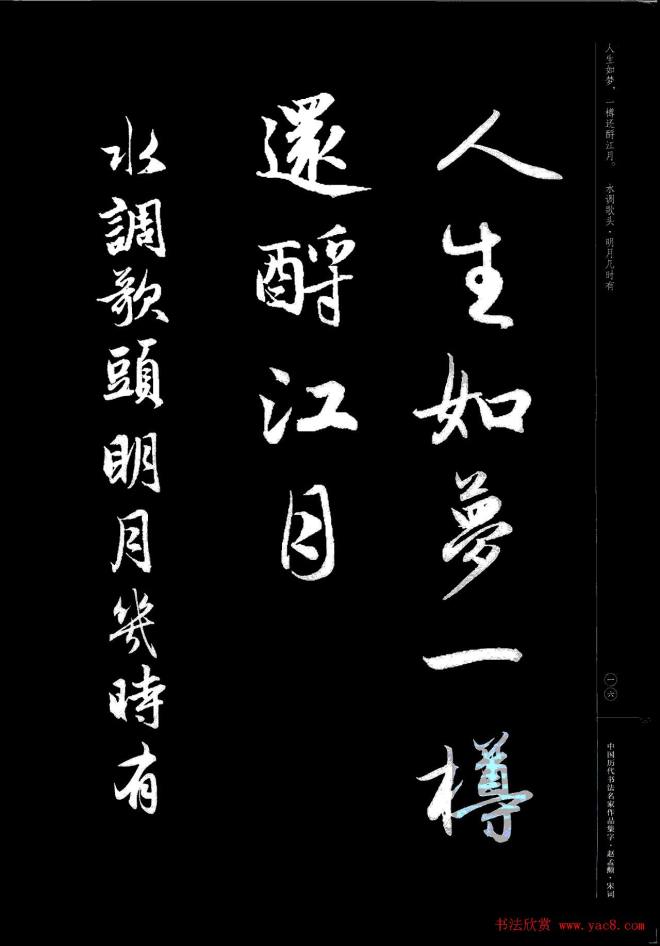 人生如夢一樽
還酹江月
水調歌頭明月幾時有
人生如梦，一樽还酹江月。 水调歌头·明月几时有
一六
中国历代书法名家作品集字·赵孟頫·宋词
书法欣赏 www.yac8.com